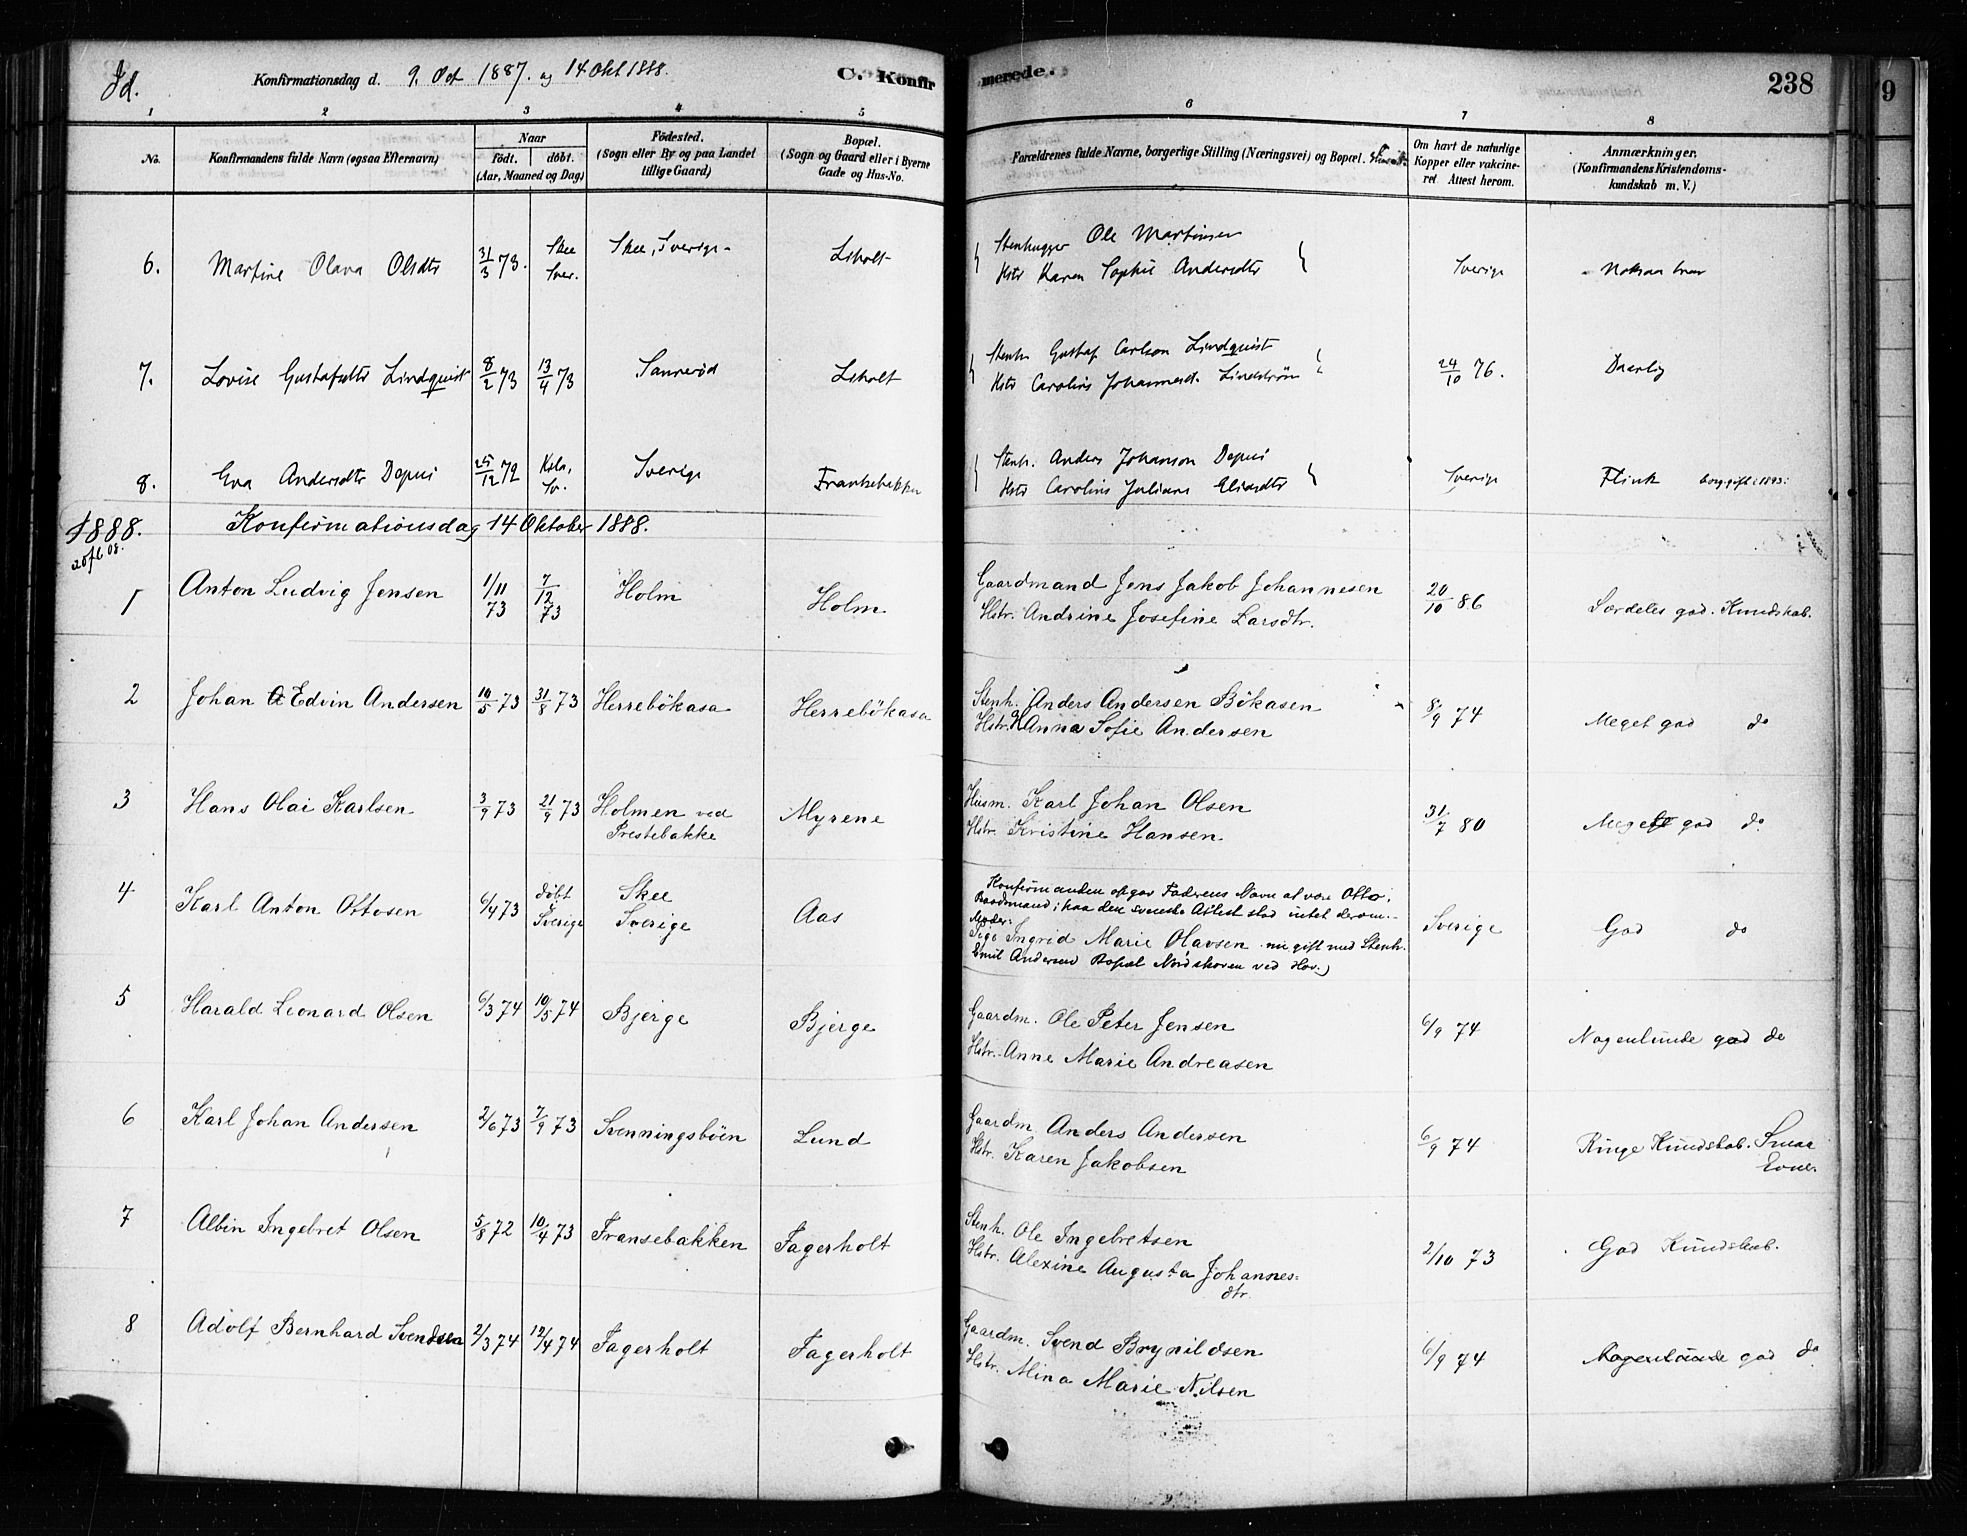 Id.
Konfirmationsdag d. 9. Oct 1887. og 14 Okt 1888.
C. Konfirmerede.
238
9
1 2 3 4 5 6 7 8
No.
Konfirmandens fulde Navn (ogsaa Efternavn)
Naar
födt. döbt.
(Aar, Maaned og Dag)
Födested.
(Sogn eller By og paa Landet
tillige Gaard)
Bopæl.
(Sogn og Gaard eller i Byerne
Gade og Hus-No.
Forældrenes fulde Navne, borgerlige Stilling (Næringsvei) og Bopæl.
Om havt de naturlige
Kopper eller vakcine-
ret Attest herom.
Anmærkninger.
(Konfirmandens Kristendoms-
kundskab m. V.)
6. Martine Olava Olsdtr 31/3 73. Skee Sver. Skee, Sverige Liholt
Stenhugger Ole Martinsen
Hstr Karen Sophie Andersdtr
Sverige Noksaa brav
7. Lovise Gustafsdtr Lindquist 8/2 73 13/4 73 Sannerød Liholt
Stenh. Gustaf Carlson Lindquist
Hstr Caroline Johannesd. Lindstrøm
24/10 76. Daarlig
8. Eva Andersdtr Depui 25/12 72 Sv. Sverige Fransebakke
Stenh. Anders Johanson Depui
Hstr Caroline Juliane Eliasdtr
Sverige Flink borg. gift i 1893.
1888. Konfirmationsdag 14 Oktober 1888.
1 Anton Ludvig Jensen 1/11 73 7/12 73 Holm Holm
Gaardmand Jens Jakob Johannesen
Hstr. Andrine Josefine Larsdtr.
20/10 86 Særdeles god. Kundskab.
2 Johan Edvin Andersen 10/5 73 31/8 73 Herrebökasa Herrebökasa
Stenh. Anders Andersen Bökasen
Hstr. Anna Sofie Andersen
8/9 74 Meget god do
3 Hans Olai Karlsen 3/9 73 21/9 73 Holmen ved
Prestebakke Myrene
Husm. Karl Johan Olsen
Hstr. Kristine Hansen
31/7 80 Meget god do
4 Karl Anton Ottosen 6/4 73 döbt Sverige Skee
Sverige Aas
Konfirmanden opgav Faderens Navn at være Otto
Baadsmand; paa den svenske Attest stod intet derom.
Moder:
Pige Ingrid Marie Olavsen nu gift med Stenh.
Emil Andersen Bopæl Nordskoven ved Hov.)
Sverige God do
5 Harald Leonard Olsen 6/3 74 10/5 74 Bjerge Bjerge
Gaardm. Ole Peter Jensen
Hstr. Anne Marie Andreasen
6/9 74 Nogenlunde god do
6 Karl Johan Andersen 2/6 73 7/9 73 Svenningsböen Lund
Gaardm Anders Andersen
Hstr. Karen Jakobsen
6/9 74 Ringe Kundskab. Smaa
Evner
7 Albin Ingebret Olsen 5/8 72 10/4 73 Fransebakken Fagerholt
Stenh. Ole Ingebretsen
Hstr. Alexine Augusta Johannes-
dtr.
2/10 73 God Kundskab.
8 Adolf Bernhard Svendsen 2/3 74 12/4 74 Fagerholt Fagerholt
Gaardm. Svend Brynildsen
Hstr. Mina Marie Nilsen
6/9 74 Nogenlunde god do